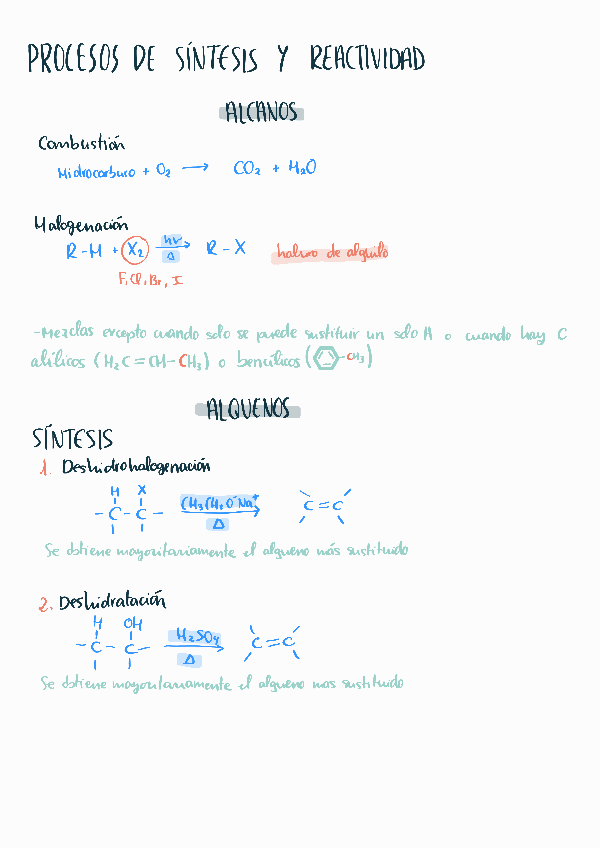 PROCESOS DE SÍNTESIS Y REACTIVIDAD
ALCANOS
Combustión
Hidrocarburo + O₂ → CO₂ + H₂O
Halogenación
R-H + X₂ hν Δ → R-X haluro de alquilo
F, Cl, Br, I
-Mezclas excepto cuando solo se puede sustituir un solo H o cuando hay C
alílicos (H₂C=CH-CH₃) o bencílicos ( -CH₃)
ALQUENOS
SÍNTESIS
1. Deshidrohalogenación
H X
-C-C- CH₃CH₂O⁻Na⁺ Δ → C=C
Se obtiene mayoritariamente el alqueno más sustituido
2. Deshidratación
H OH
-C-C- H₂SO₄ Δ → C=C
Se obtiene mayoritariamente el alqueno mas sustituido